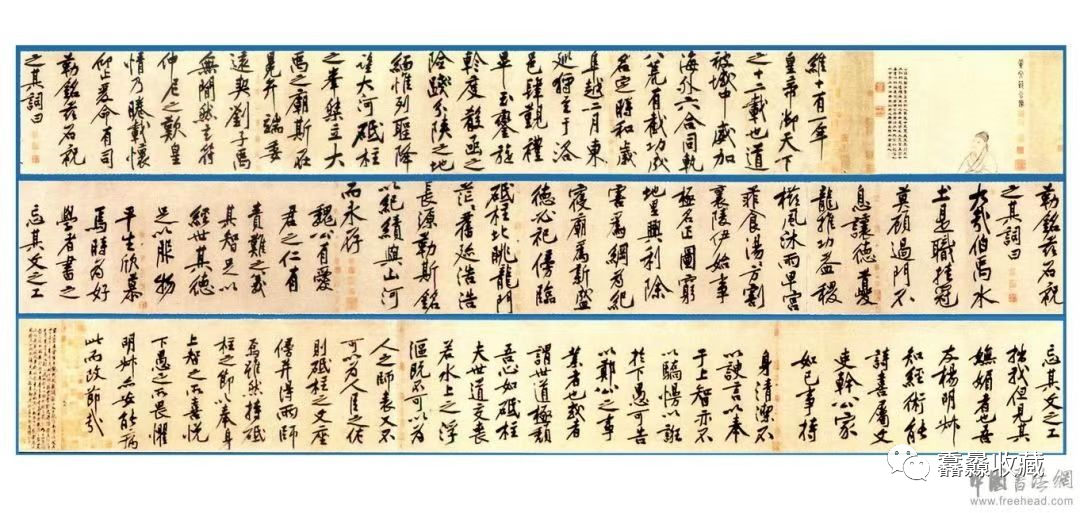 維十有一年
皇帝御天下
之十二載也道
被域中威加
海外六合同軌
八荒有截功成
名定時和歲
阜越二月東
巡狩至于洛
邑肆觀禮
畢玉鑾旋
軫度殽函之
險踐分陝之地
緬惟列聖降
望大河砥柱
之峯桀立大
禹之廟斯在
冕弁端委
遠契劉子禹
無閒然玄符
仲尼之歎皇
情乃睠載懷
仰止爰命有司
勒銘茲石祝
之其詞曰
勒銘茲石祝
之其詞曰
大哉伯禹水
土是職挂冠
莫顧過門不
息讓德夔
龍推功益稷
櫛風沐雨卑宮
菲食湯方割
襄陵伊始事
極名正圖窮
地里興利除
害爲綱爲紀
寢廟爲新盛
德必祀傍臨
砥柱北眺龍門
茫茫舊迹浩浩
長源勒斯銘
以紀績與山河
而永存
魏公有愛
君之仁有
責難之義
其智足以
經世其德
足以服物
平生欣慕
焉時為好
學者書之
忘其文之工
忘其文之工
拙我但見其
嫵媚者也吾
友楊明叔
知經術能
詩喜屬文
吏幹公家
如己事持
身清潔不
以諛言以奉
于上智亦不
以驕慢以誑
於下愚可告
以鄭公之事
業者也或者
謂世道極頹
吾心如砥柱
夫世道交喪
若水上之浮
漚既不可以為
人之師表又不
可以為人臣之佐
則砥柱之文座
傍并得兩師
焉雖然持砥
柱之節以奉身
上智之所喜悅
下愚之所畏懼
明叔亦安能病
此而改節哉
羴鱻收藏
中國書法網
www.freehead.com